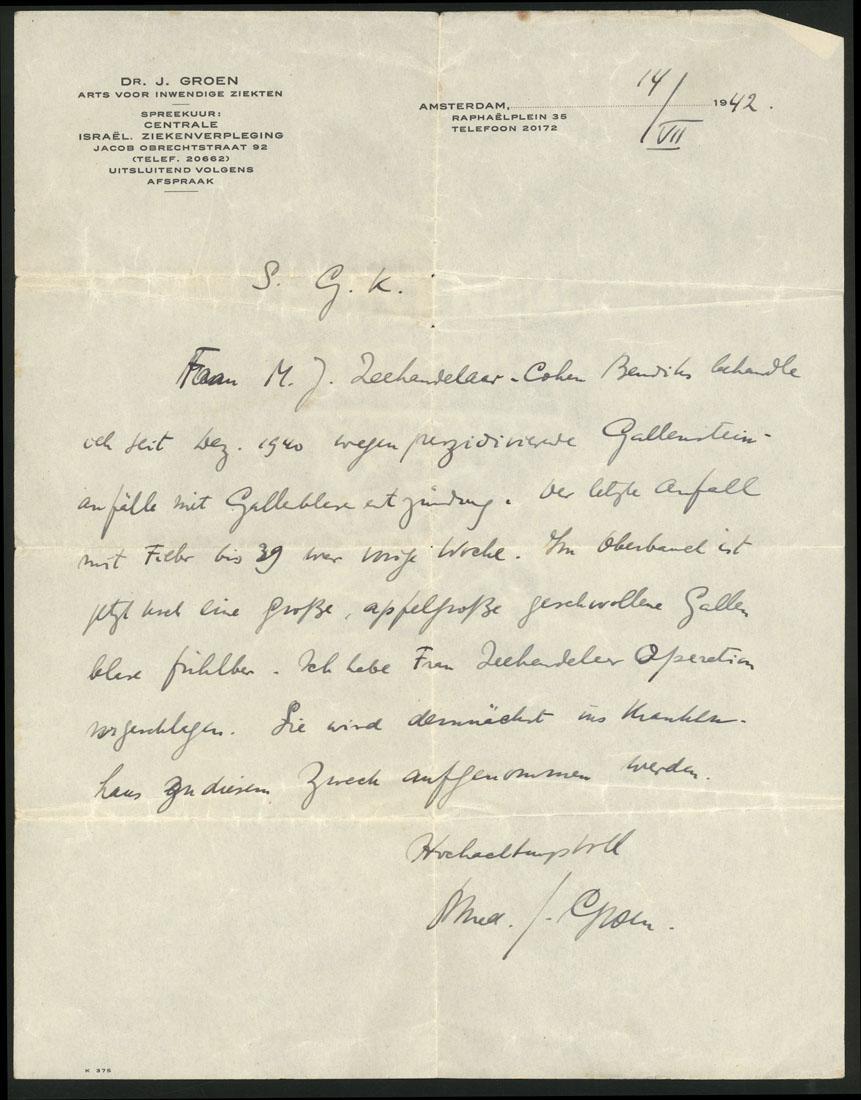 DR. J. GROEN
ARTS VOOR INWENDIGE ZIEKTEN
SPREEKUUR:
CENTRALE
ISRAËL. ZIEKENVERPLEGING
JACOB OBRECHTSTRAAT 92
(TELEF. 20662)
UITSLUITEND VOLGENS
AFSPRAAK
AMSTERDAM, 14/VII 1942.
RAPHAËLPLEIN 35
TELEFOON 20172
S. G. K.
Frau M. J. Zeehandelaar-Cohen Bendiks behandle
ich seit Dez. 1940 wegen rezidivierende Gallenstein-
anfälle mit Galleblase entzündung. Der letzte Anfall
mit Fieber bis 39 war vorige Woche. Im Oberbauch ist
jetzt noch eine große, apfelgroße geschwollene Gallen
blase fühlbar. Ich habe Frau Zeehandelaar Operation
vorgeschlagen. Sie wird demnächst ins Kranken-
haus zu diesem Zweck aufgenommen werden.
Hochachtungsvoll
J. Groen.
K 375